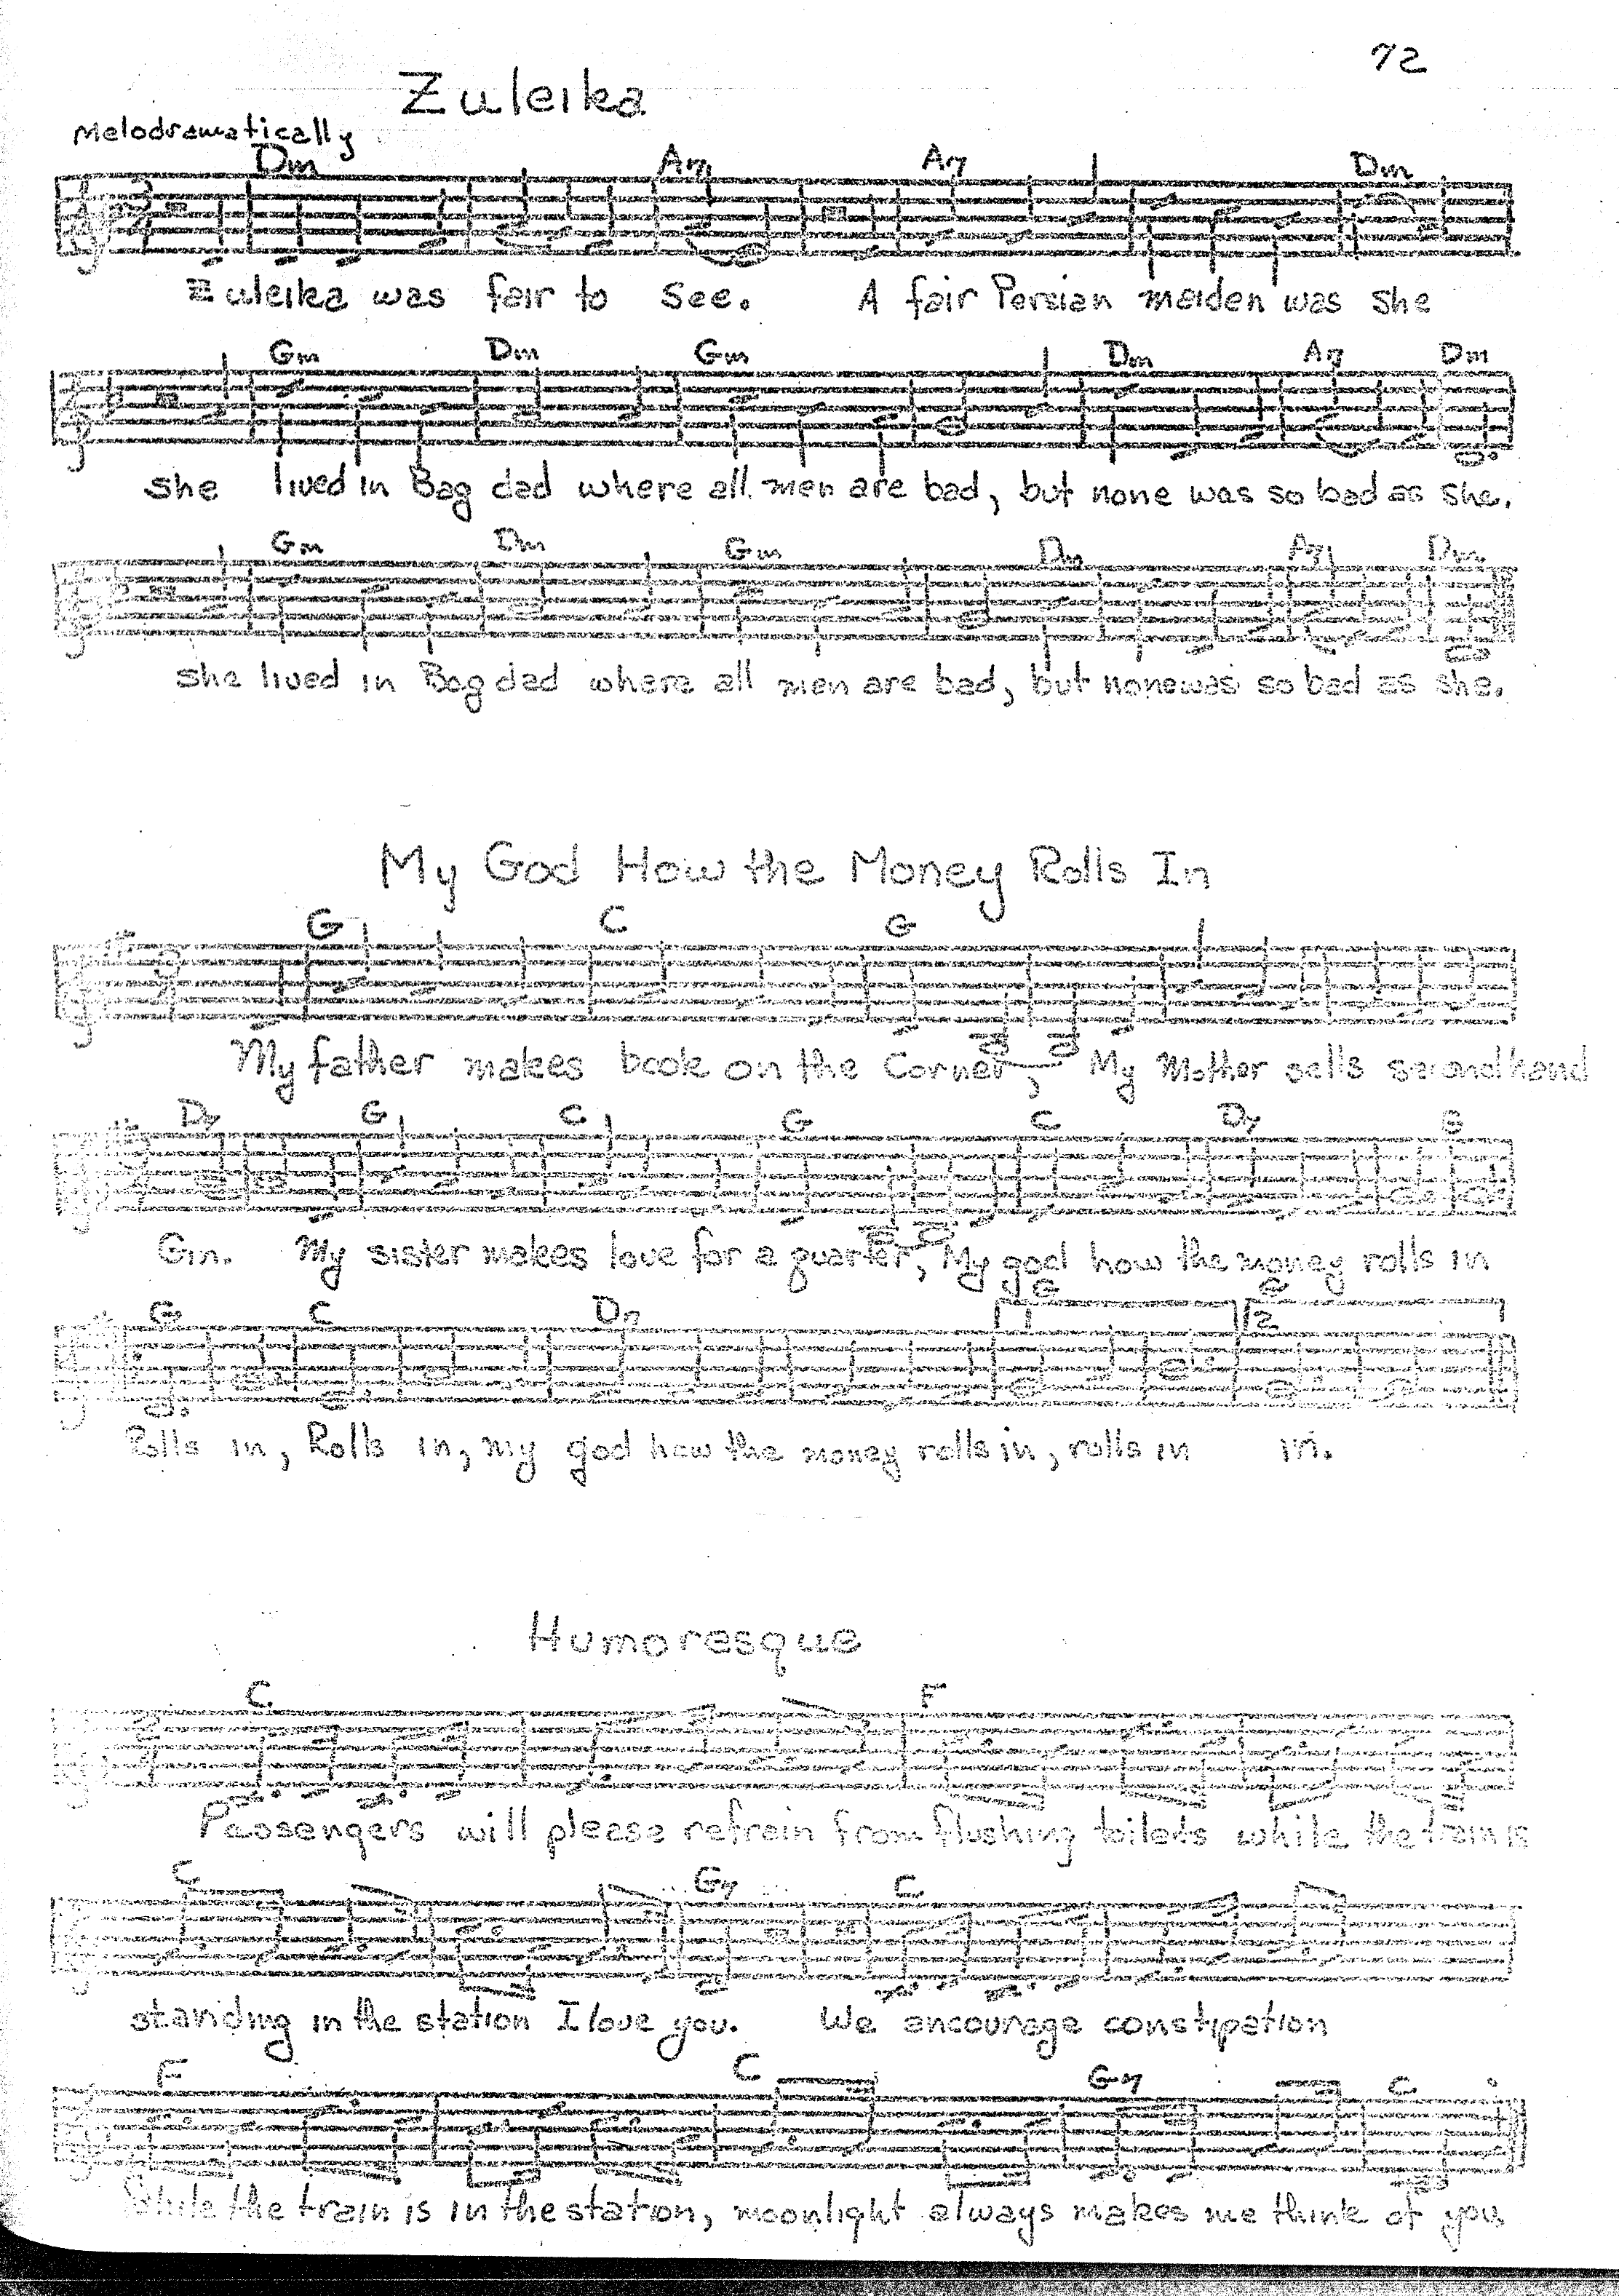 72
Zuleika
Melodramatically
Dm A7 A7 Dm
Zuleika was fair to see. A fair Persian maiden was she
Gm Dm Gm Dm A7 Dm
She lived in Bag dad where all men are bad, but none was so bad as she.
Gm Dm Gm Dm A7 Dm
She lived in Bag dad where all men are bad, but none was so bad as she.
My God How the Money Rolls In
G C G
My father makes book on the Corner, My Mother sells second hand
D7 G C G C D7 G
Gin. My sister makes love for a quarter, My god how the money rolls in
G C D7 G G
1 2
Rolls in, Rolls in, my god how the money rolls in, rolls in in.
Humoresque
C F
Passengers will please refrain from flushing toilets while the train is
C G7 C
standing in the station I love you. We encourage constipation
F C G7 C
While the train is in the station, moonlight always makes me think of you